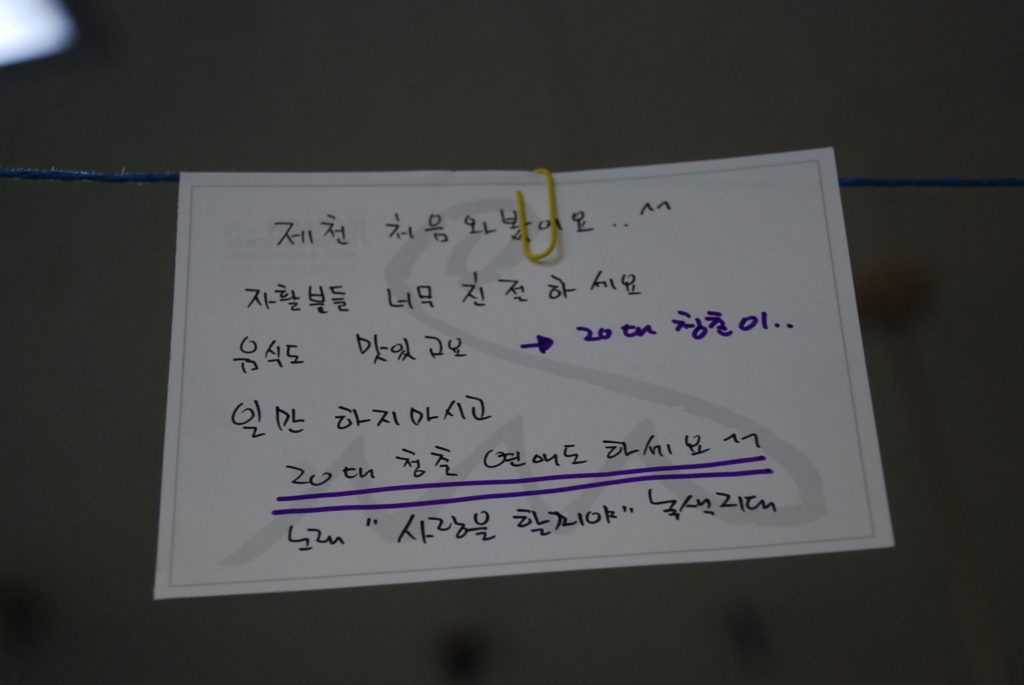 제천 처음 와봤어요.. ^^
자활분들 너무 친절하세요
음식도 맛있고요 → 20대 청춘이..
일만 하지마시고
20대 청춘 연애도 하세요 ^^
노래 "사랑을 할꺼야" 녹색지대